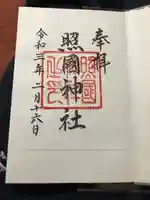 奉拝
照國神社
令和三年二月十六日